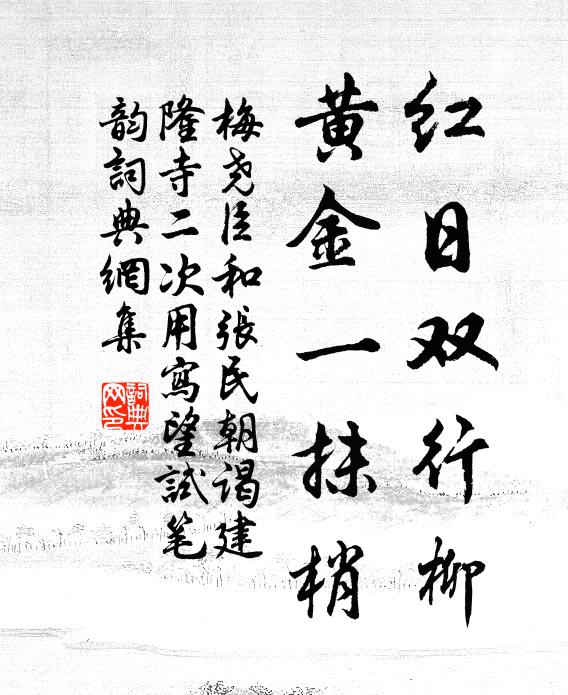 红日双行柳
黄金一抹梢
梅尧臣和张民朝谒建
隆寺二次用寫望試笔
韵詞典網集
詞典
网印